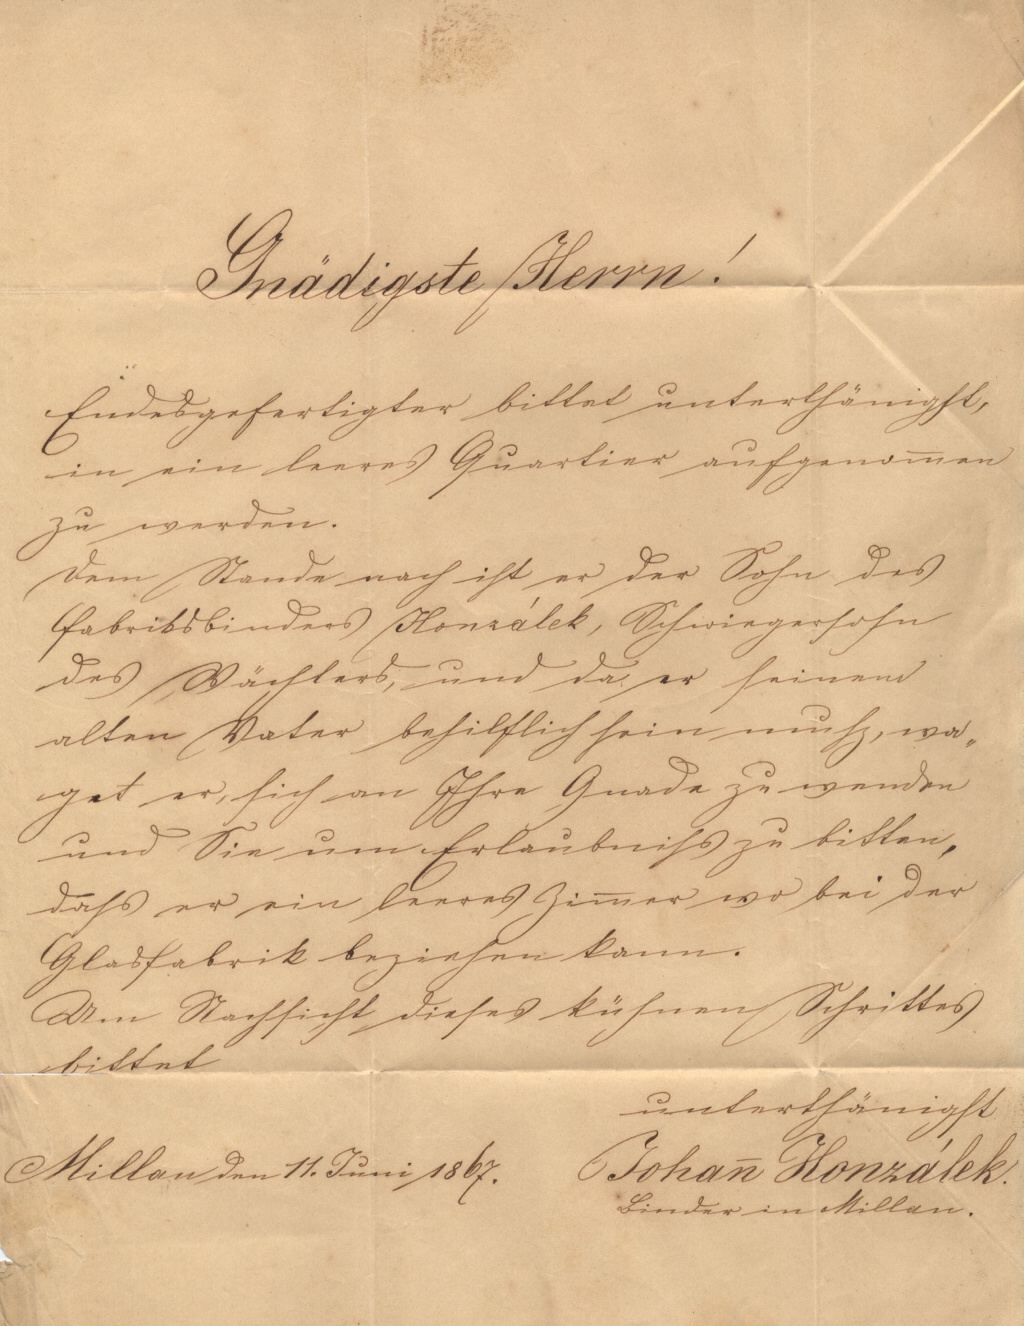 Gnädigste Herrn!
Endesgefertigter bittet unterthänigst,
in ein leeres Quartier aufgenom̅en
zu werden.
Dem Stande nach ist er der Sohn des
Fabriksbinders Honzálek, Schwiegersohn
des Wächters, und da er seinem
alten Vater behilflich sein muß, wa„
get er, sich an Ihre Gnade zu wenden
und Sie um Erlaubniß zu bitten,
daß er ein leeres Zim̅er wo bei der
Glasfabrik beziehen kann.
Um Nachsicht dieses kühnen Schrittes
bittet
unterthänigst
Millan den 11. Juni 1867.
Johan̅ Honzálek.
Binder in Millan.